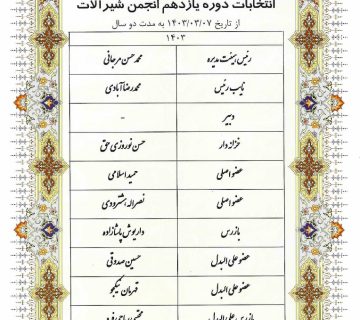 انتخابات دوره یازدهم انجمن شیرآلات
از تاریخ ۱۴۰۳/۰۳/۰۷ به مدت دو سال
۱۴۰۳
رئیس هیئت مدیره محمدحسن مرجانی
نایب رئیس محمدرضا آبادی
دبیر -
خزانه دار حسن نوروزی حق
عضو اصلی حمید اسلامی
عضو اصلی نصراله اشترودی
بازرس داریوش پاشازاده
عضو علی البدل حسین صدوقی
عضو علی البدل قهرمان نیکجو
بازرس علی البدل مجتبی